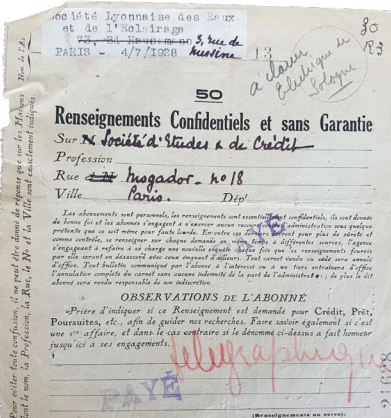 Société Lyonnaise des Eaux
et de l'Eclairage
73, Bd Haussmann 3, rue de
PARIS - 4/7/1928 Messine
13
30
à classer
Electrique de
Sologne
50
Renseignements Confidentiels et sans Garantie
Sur Société d'Etudes & de Crédit
Profession
Rue Mogador - no 18
Ville Paris. Dépt
Les abonnements sont personnels, les renseignements sont essentiellement confidentiels, ils sont donnés
de bonne foi et les abonnés s'engagent à n'exercer aucun recours contre l'administration sous quelque
prétexte que ce soit même pour faute lourde. En outre ces derniers
comme contrôle, se renseigner sur chaque demande à temps à différentes sources, l'agence
s'engageant à refaire à sa charge une nouvelle enquête chaque fois que les renseignements fournis
par elle seront en désaccord avec ceux émanant d'ailleurs. Tout carnet vendu ou cédé sera annulé
d'office. Tout bulletin communiqué par l'abonné à l'intéressé ou à un tiers entraînera d'office
l'annulation complète du carnet sans aucune indemnité de la part de l'administration; de plus le dit
abonné sera rendu responsable de son indiscrétion.
PAYÉ
OBSERVATIONS DE L'ABONNÉ
Prière d'indiquer si ce Renseignement est demandé pour Crédit, Prêt,
Poursuites, etc., afin de guider nos recherches. Faire savoir également si c'est
une 1re affaire, et dans le cas contraire si le dénommé ci-dessus a fait honneur
jusqu'ici à ses engagements.
télégraphique
PAYÉ
Pour éviter toute confusion, il ne peut être donné de réponse que sur les Maisons
dont le nom, la Profession, la Rue, le No et la Ville sont exactement indiqués.